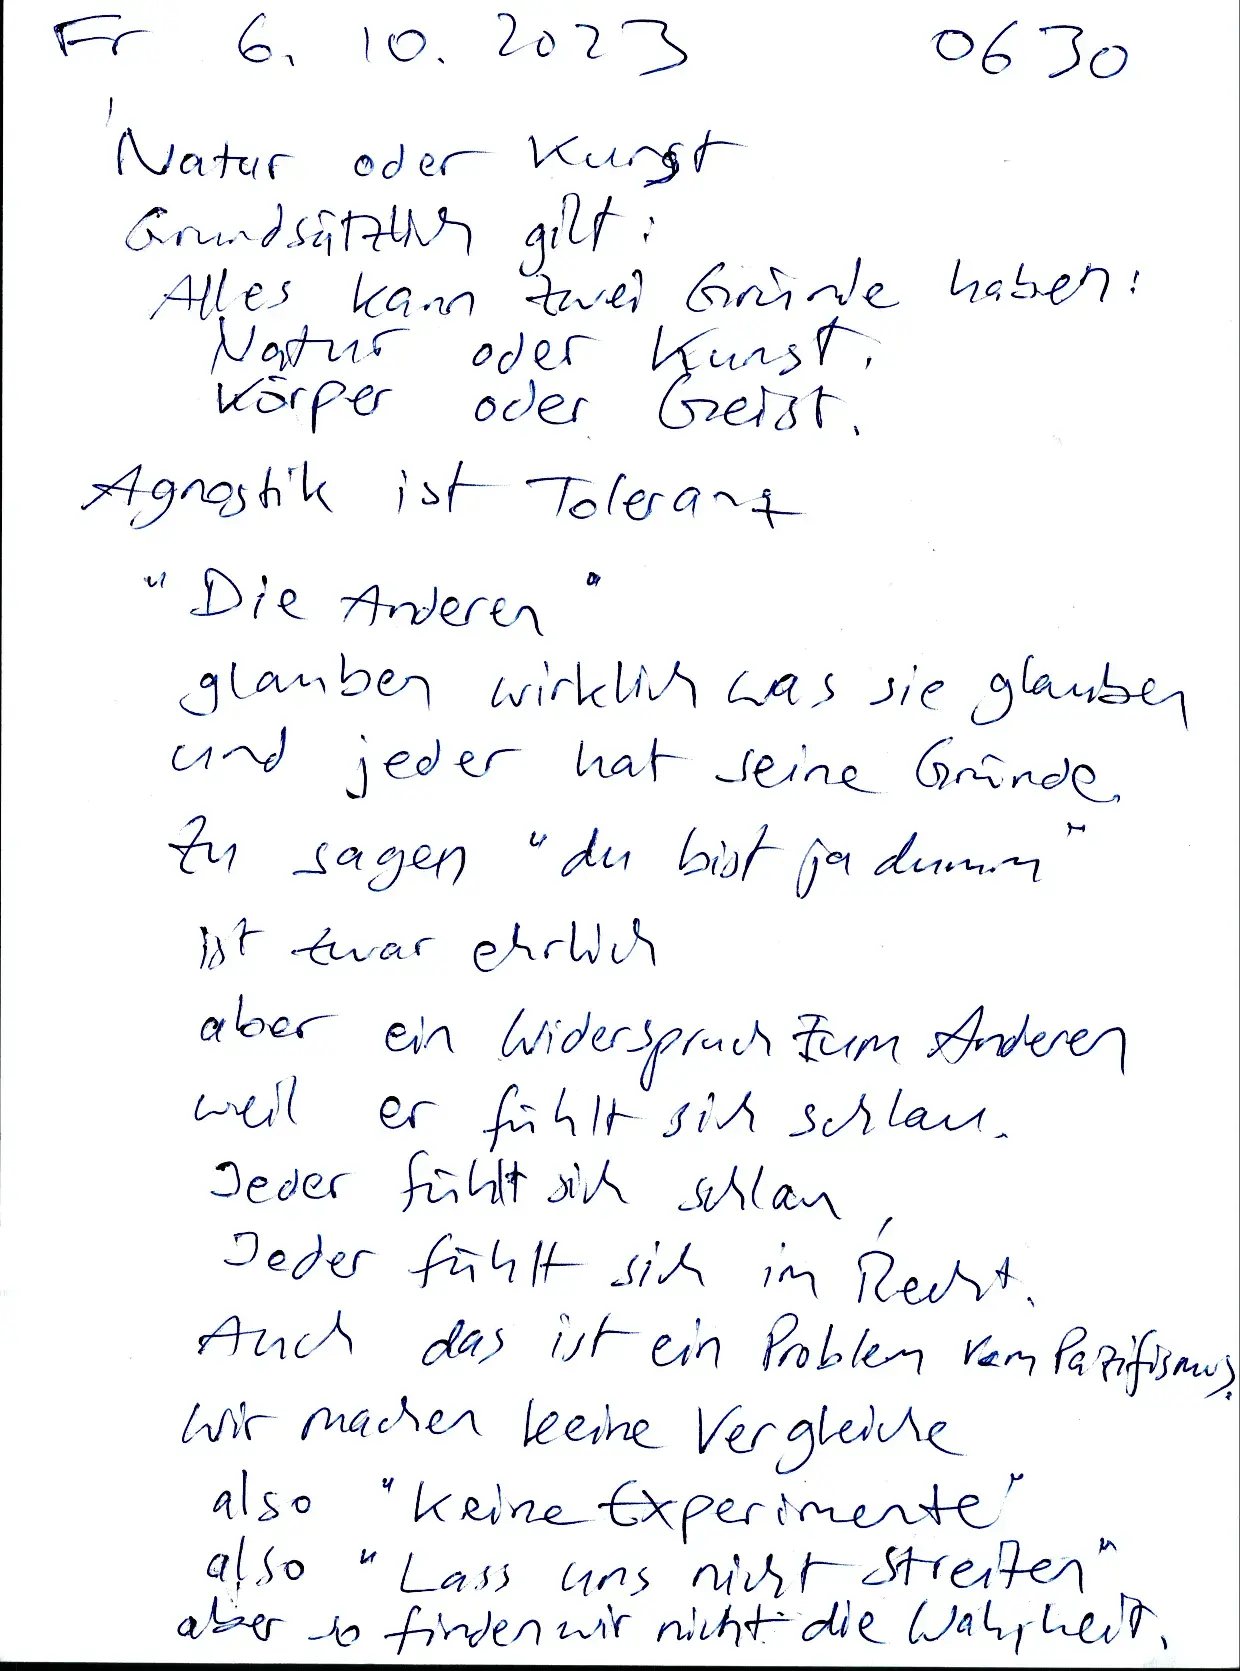 Fr 6. 10. 2023 0630
Natur oder Kunst
Grundsätzlich gilt:
Alles kann zwei Gründe haben:
Natur oder Kunst.
Körper oder Geist.
Agnostik ist Toleranz
"Die Anderen"
glauben wirklich was sie glauben
und jeder hat seine Gründe.
Zu sagen "du bist ja dumm"
ist zwar ehrlich
aber ein Widerspruch zum Anderen
weil er fühlt sich schlau.
Jeder fühlt sich schlau,
Jeder fühlt sich im Recht.
Auch das ist ein Problem vom Pazifismus.
wir machen keine Vergleiche
also "Keine Experimente"
also "Lass uns nicht streiten"
aber so finden wir nicht die Wahrheit.